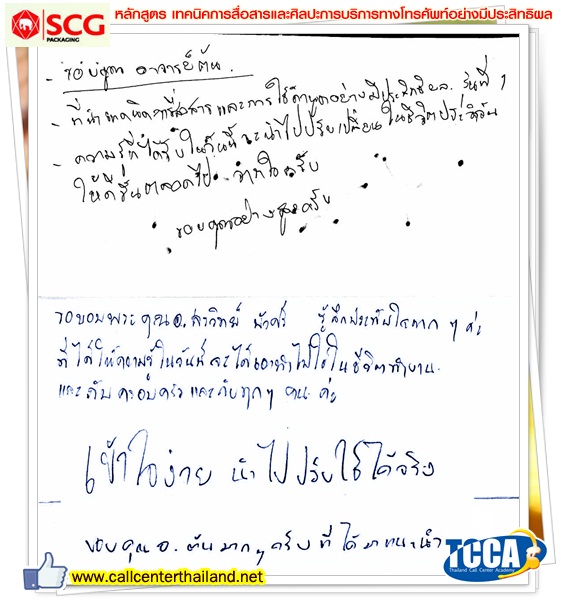 SCG
PACKAGING
หลักสูตร เทคนิคการสื่อสารและศิลปะการบริการทางโทรศัพท์อย่างมีประสิทธิผล
- ขอบคุณ อาจารย์ต้น
- ที่นำเทคนิคการสื่อสาร และการใช้คำพูดอย่างมีประสิทธิผล วันที่ 1
- ความรู้ที่ได้รับในวันนี้จะนำไปปรับเปลี่ยนในชีวิตประจำวัน
ให้ดีขึ้นตลอดไป จากใจครับ
ขอบคุณอย่างสูงครับ
ขอขอบพระคุณ อ. รู้สึกประทับใจมาก ๆ ค่ะ
ที่ได้ให้ความรู้ในวันนี้ จะได้เอาทำไปใช้ในชีวิตทำงาน
และกับครอบครัว และกับทุกๆ คน ค่ะ
เข้าใจง่าย นำไปปรับใช้ได้จริง
ขอบคุณ อ. ต้นมากๆครับ ที่ได้มาแนะนำ
www.callcenterthailand.net
TCCA
Thailand Call Center Academy